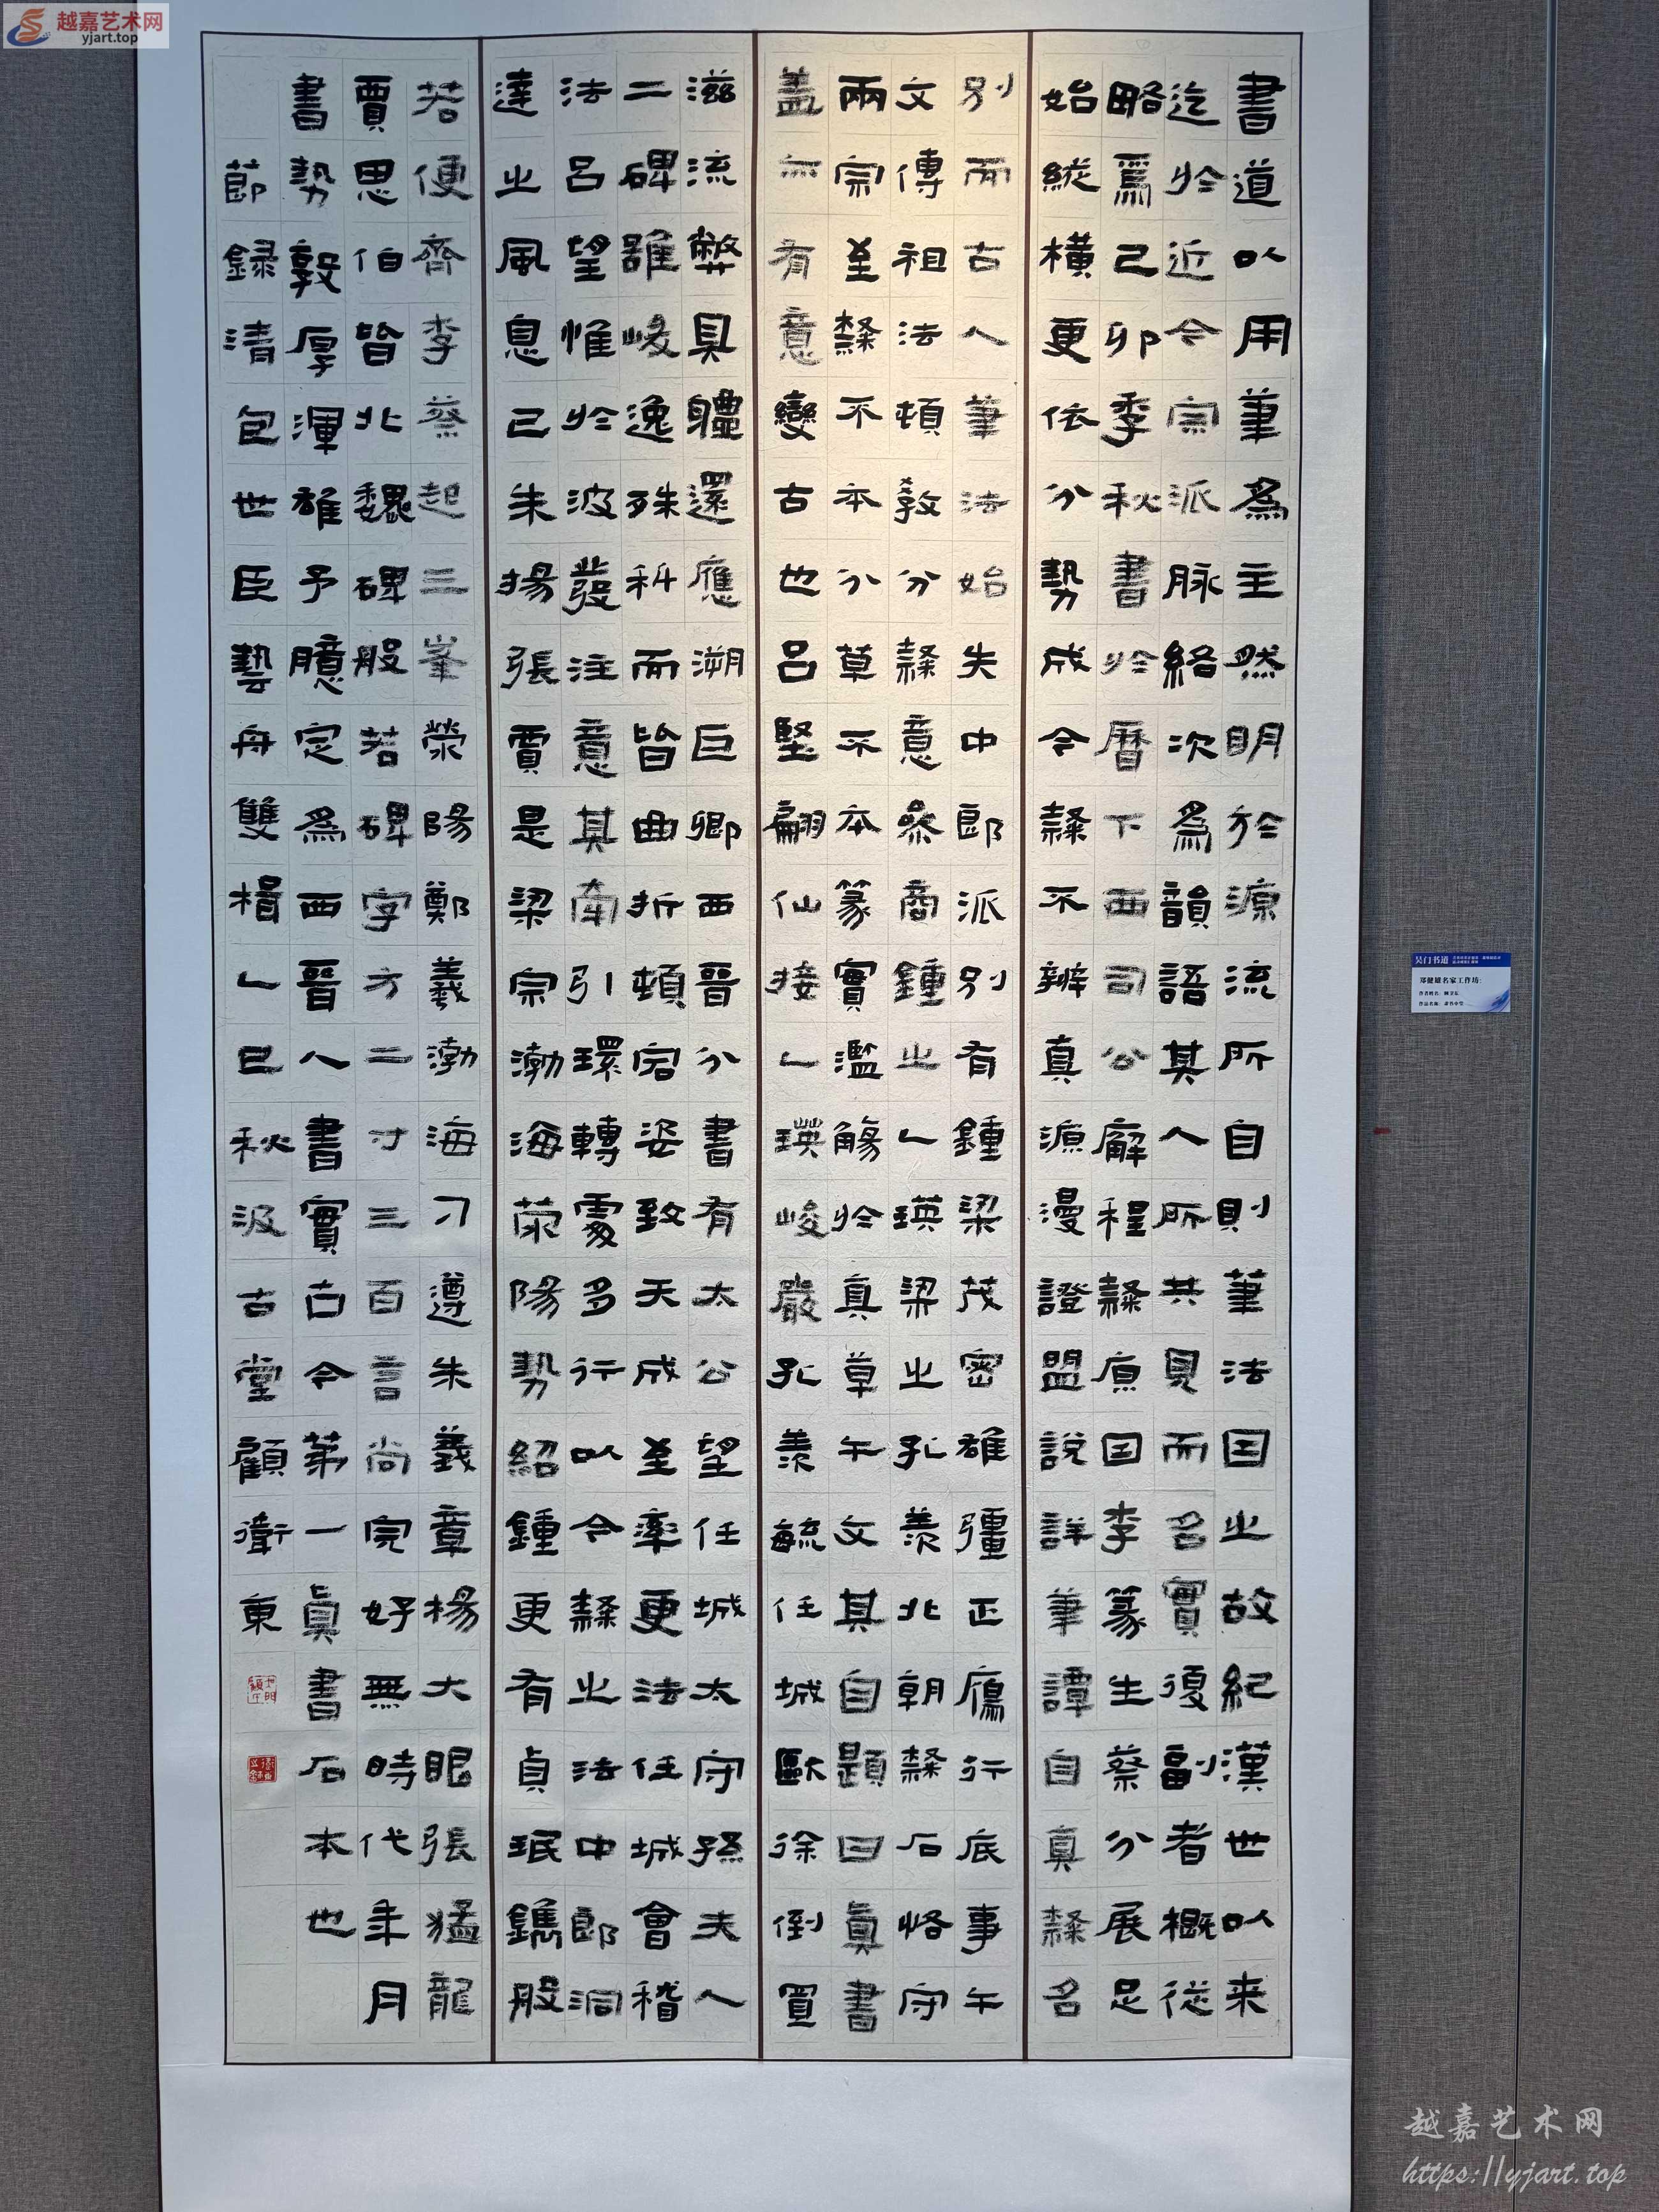 越嘉艺术网
yjart.top
書道以用筆為主然明於源流所自則筆法因之故紀漢世以来
迄於近今宗派脉絡次為韻語其人所共見而名實復副者概従
略焉己卯季秋書於曆下西司公廨程隸原因李篆生蔡分展足
始縱横更依分勢成今隸不辨真源漫證盟說詳筆譚自真隸名
别而古人筆法始失中郎派别有鍾梁茂密雄彊正鴈行底事午
文傳祖法頓教分隸意參商鍾之乙瑛梁之孔羨北朝隸石恪守
兩宗至隸不本分草不本篆實濫觴於真草午文其自題曰真書
盖亦有意變古也呂堅翩仙接乙瑛峻嚴孔羨毓任城歐徐倒買
滋流弊具軆還應溯巨卿西晉分書有太公望任城太守孫夫人
二碑雖峻逸殊科而皆曲折頓宕姿致天成至率更法任城會稽
法呂望惟於波發注意其南引環轉處多行以今隸之法中郎洞
達之風息已朱揚張賈是梁宗渤海荥陽勢紹鍾更有貞珉鐫般
若便齊李蔡起三峯滎陽鄭羲渤海刁遵朱義章楊大眼張猛龍
賈思伯皆北魏碑般若碑字方二寸三百言尚完好無時代年月
書勢敦厚渾雄予臆定為西晉人書實古今第一真書石本也
節録清包世臣藝舟雙楫乙巳秋汲古堂顧衛東
吴门书道
名家工作坊：
作者姓名：顾卫东
作品名称：隶书中堂
越嘉艺术网
https://yjart.top